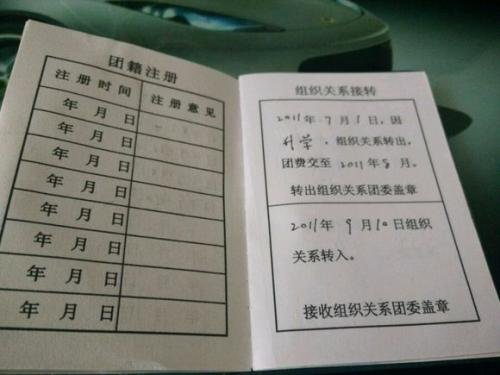 团籍注册
注册时间 注册意见
年 月 日
年 月 日
年 月 日
年 月 日
年 月 日
年 月 日
年 月 日
年 月 日
组织关系接转
2011年9月1日,因
升学,组织关系转出,
团费交至2011年8月。
转出组织关系团委盖章
2011年9月10日组织
关系转入。
接收组织关系团委盖章